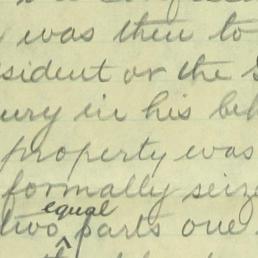 was then to
sident or the
ury in his
property was
formally seize
equal
two parts one